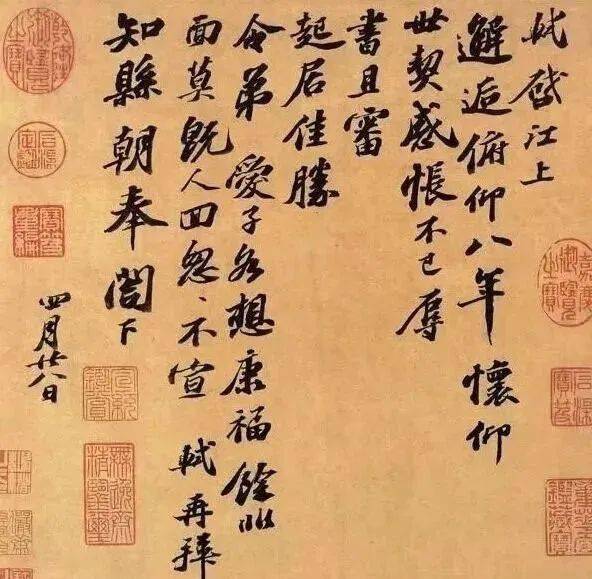 軾啓江上
邂逅俯仰八年懷仰
世契感悵不已辱
書且審
起居佳勝
令弟愛子各想康福餘非
面莫既人回忽、不宣 軾再拜
知縣朝奉閤下
四月廿八日